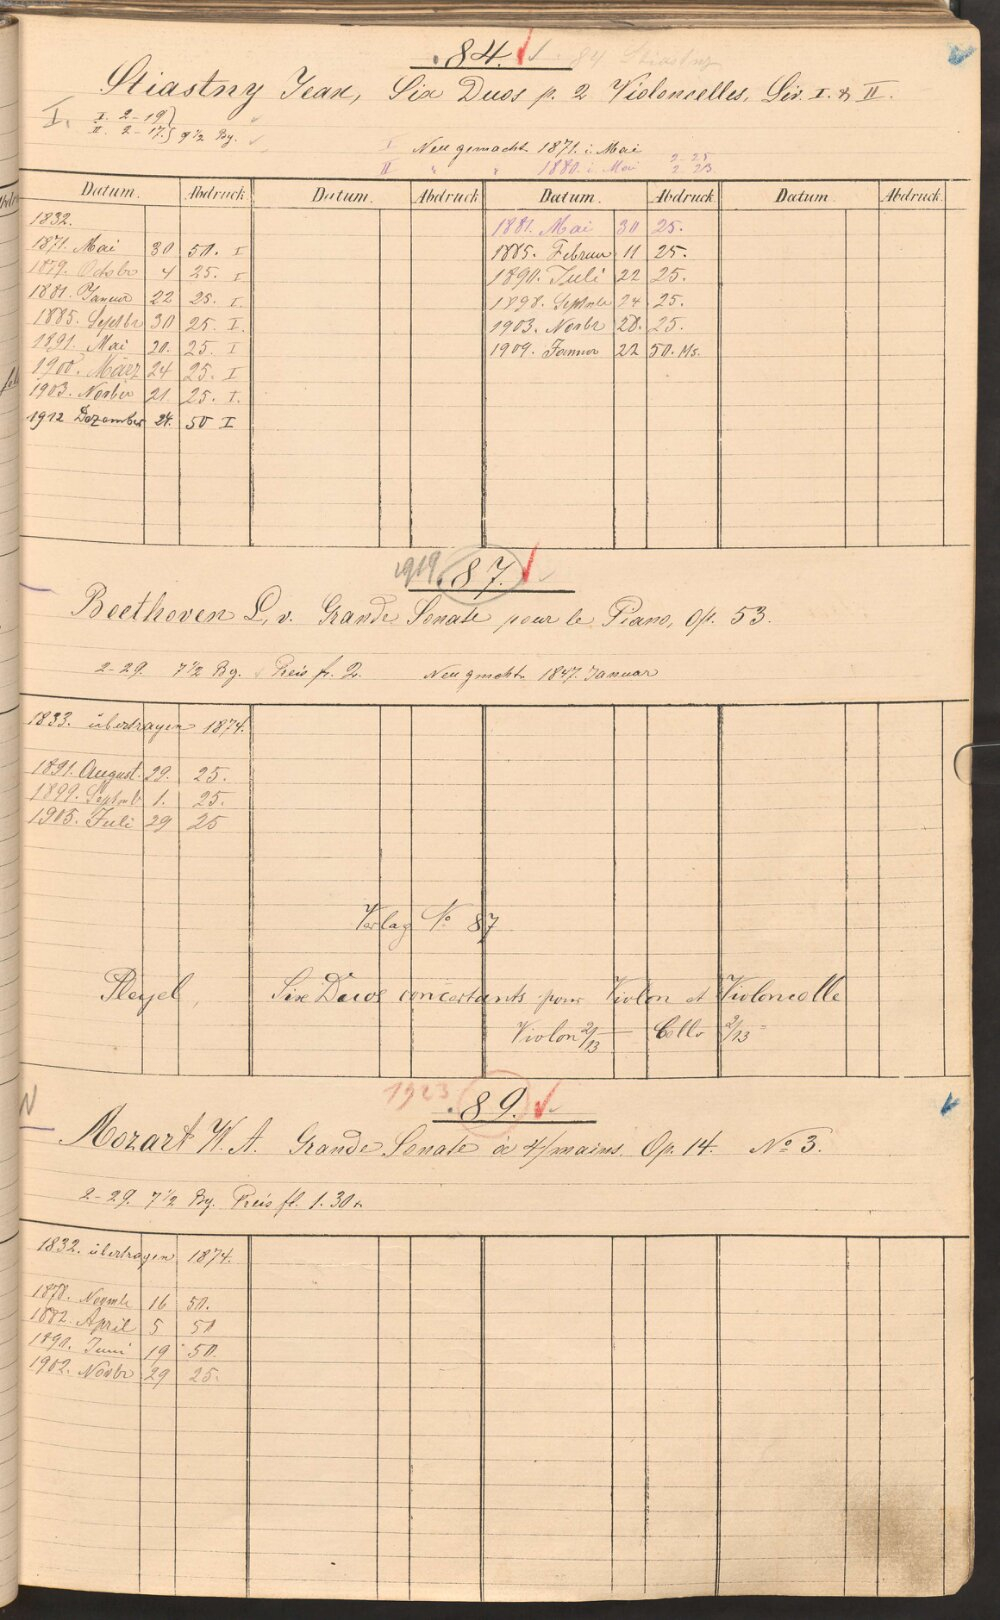 84. 84 Stiastny
Stiastny Jean, Six Duos p. 2 Violoncelles, Liv. I. & II.
I. I. 2-19
II. 2-17. 9 1/2 Bg.
I Neu gemacht 1871. i. Mai
II " " 1881. i. Mai
Datum. Abdruck Datum. Abdruck Datum. Abdruck Datum Abdruck
1832.
1871. Mai 30 50. I
1879. Octobr 4 25. I
1881. Januar 22 25. I
1885. Septbr 30 25. I.
1891. Mai 20. 25. I
1900. März 24 25. I
1903. Novbr 21. 25. I.
1912 Dezember 24. 50 I
1881. Mai 30 25.
1885. Februar 11 25.
1890. Juli 22 25.
1898. Septmbr 24 25.
1903. Novbr 28. 25.
1909. Januar 22 50. Ms.
1919 87.
Beethoven L. v. Grande Sonate pour le Piano, Op. 53.
2-29. 7 1/2 Bg. Preis fr. 2. Neu gmcht. 1847. Januar
1833. übertragen 1874.
1891. August. 29. 25.
1899. Septmb 1. 25.
1905. Juli 29 25
Verlag No 87
Pleyel, Six Duos concertants pour Violon et Violoncelle
Violon 2/13 Cello 2/13
1923 89.
Mozart W. A. Grande Sonate à 4/mains. Op. 14. No 3.
2-29. 7 1/2 Bg. Preis fl. 1. 30 x
1832. übertragen 1874.
1878. Novmb 16 50.
1882. April 5 50
1890. Juni 19 50.
1902. Novbr 29 25.